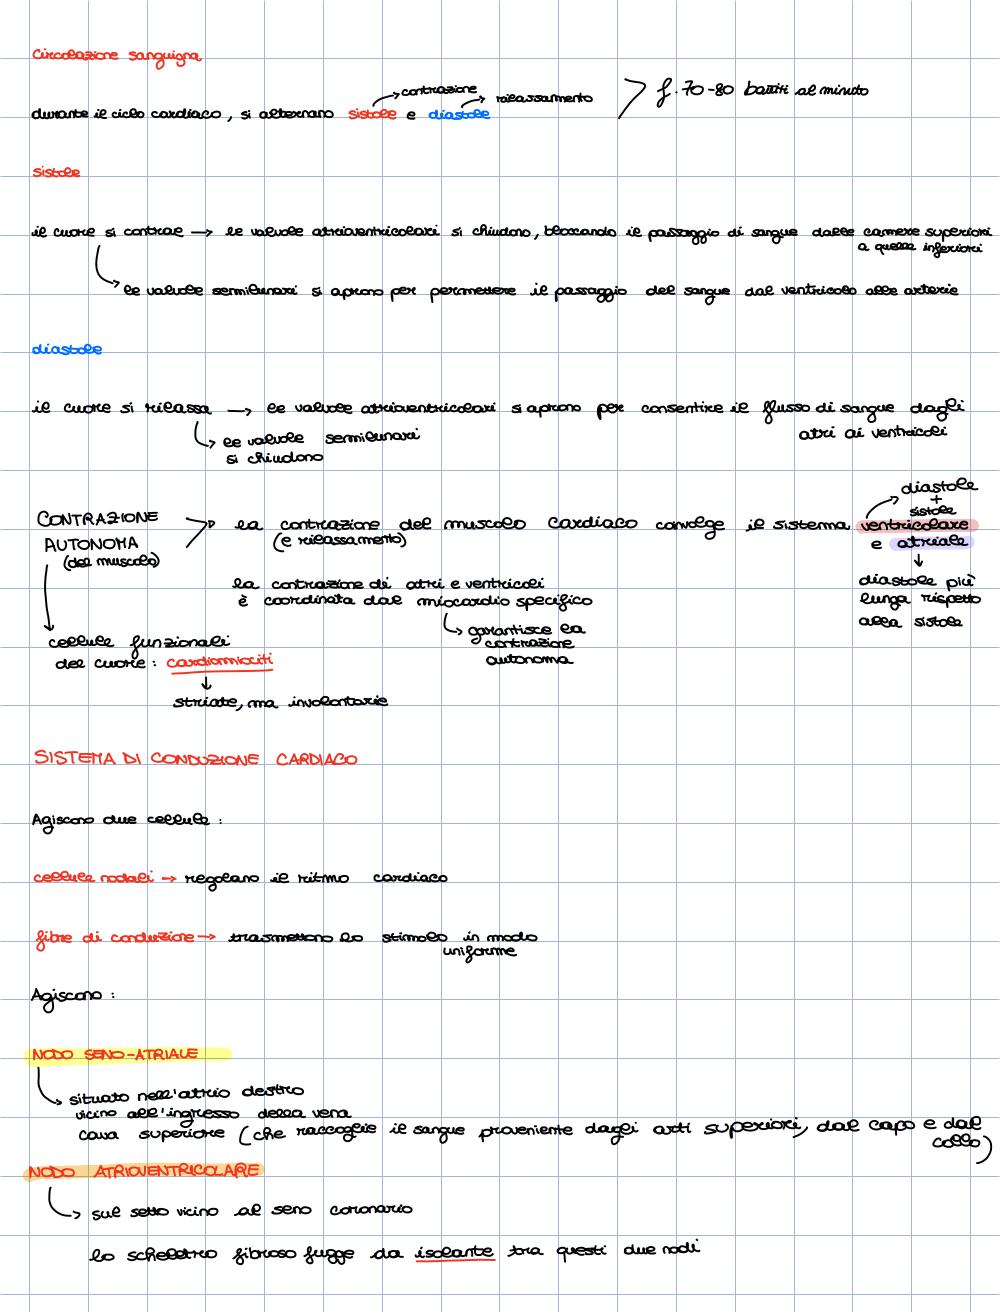 Circolazione sanguigna
contrazione
rilassamento
f. 70-80 battiti al minuto
durante il ciclo cardiaco, si alternano sistole e diastole
sistole
il cuore si contrae → le valvole atrioventricolari si chiudono, bloccando il passaggio di sangue dalle camere superiori
a quelle inferiori
le valvole semilunari si aprono per permettere il passaggio del sangue dal ventricolo alle arterie
diastole
il cuore si rilassa → le valvole atrioventricolari si aprono per consentire il flusso di sangue dagli
atri ai ventricoli
le valvole semilunari
si chiudono
CONTRAZIONE
AUTONOMA
(del muscolo)
la contrazione del muscolo cardiaco coinvolge il sistema ventricolare
(e rilassamento)
e atriale
diastole
+
sistole
diastole più
lunga rispetto
alla sistole
la contrazione di atri e ventricoli
è coordinata dal miocardio specifico
garantisce la
contrazione
autonoma
cellule funzionali
del cuore: cardiomiociti
striate, ma involontarie
SISTEMA DI CONDUZIONE CARDIACO
Agiscono due cellule:
cellule nodali → regolano il ritmo cardiaco
fibre di conduzione → trasmettono lo stimolo in modo
uniforme
Agiscono:
NODO SENO-ATRIALE
situato nell'atrio destro
vicino all'ingresso della vena
cava superiore (che raccoglie il sangue proveniente dagli arti superiori, dal capo e dal
collo)
NODO ATRIOVENTRICOLARE
sul setto vicino al seno coronario
lo scheletro fibroso fugge da isolante tra questi due nodi